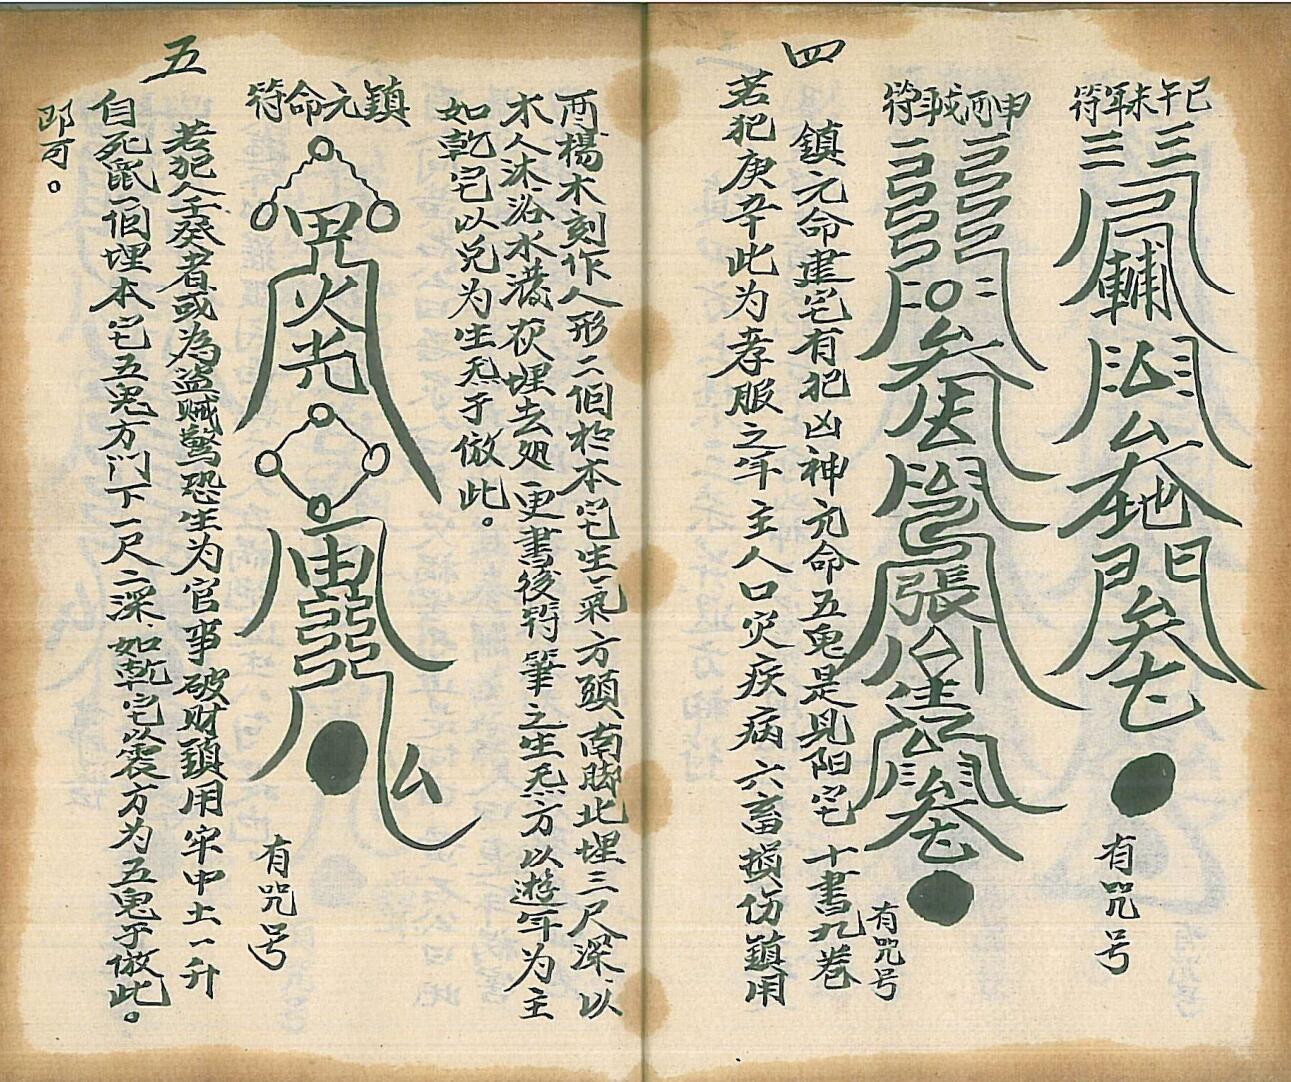 四
巳午未年符
有咒号
申酉戌年符
有咒号
鎮元命䢖宅有犯凶神元命五鬼是見阳宅十書九卷
若犯庚辛此为孝服之年主人口灾疾病六畜损伤鎮用
西楊木刻作人形二個於本宅生氣方頭南脚北埋三尺深以
木人沐浴水潑
埋去处更書後符筆之生炁方以遊年为主
如乾宅以兑为生炁于倣此。
鎮元命符
有咒号
若犯壬癸者或為盗賊驚恐生为官事破财鎮用牢中土一升
自死鼠一個埋本宅五鬼方门下一尺二深如乾宅以震方为五鬼于倣此。
即可。
五